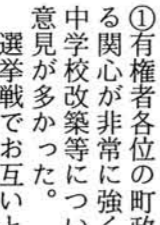 ①有権者各位の町政
る関心が非常に強く
中学校改築等につい
意見が多かった。
選挙戦でお互いと